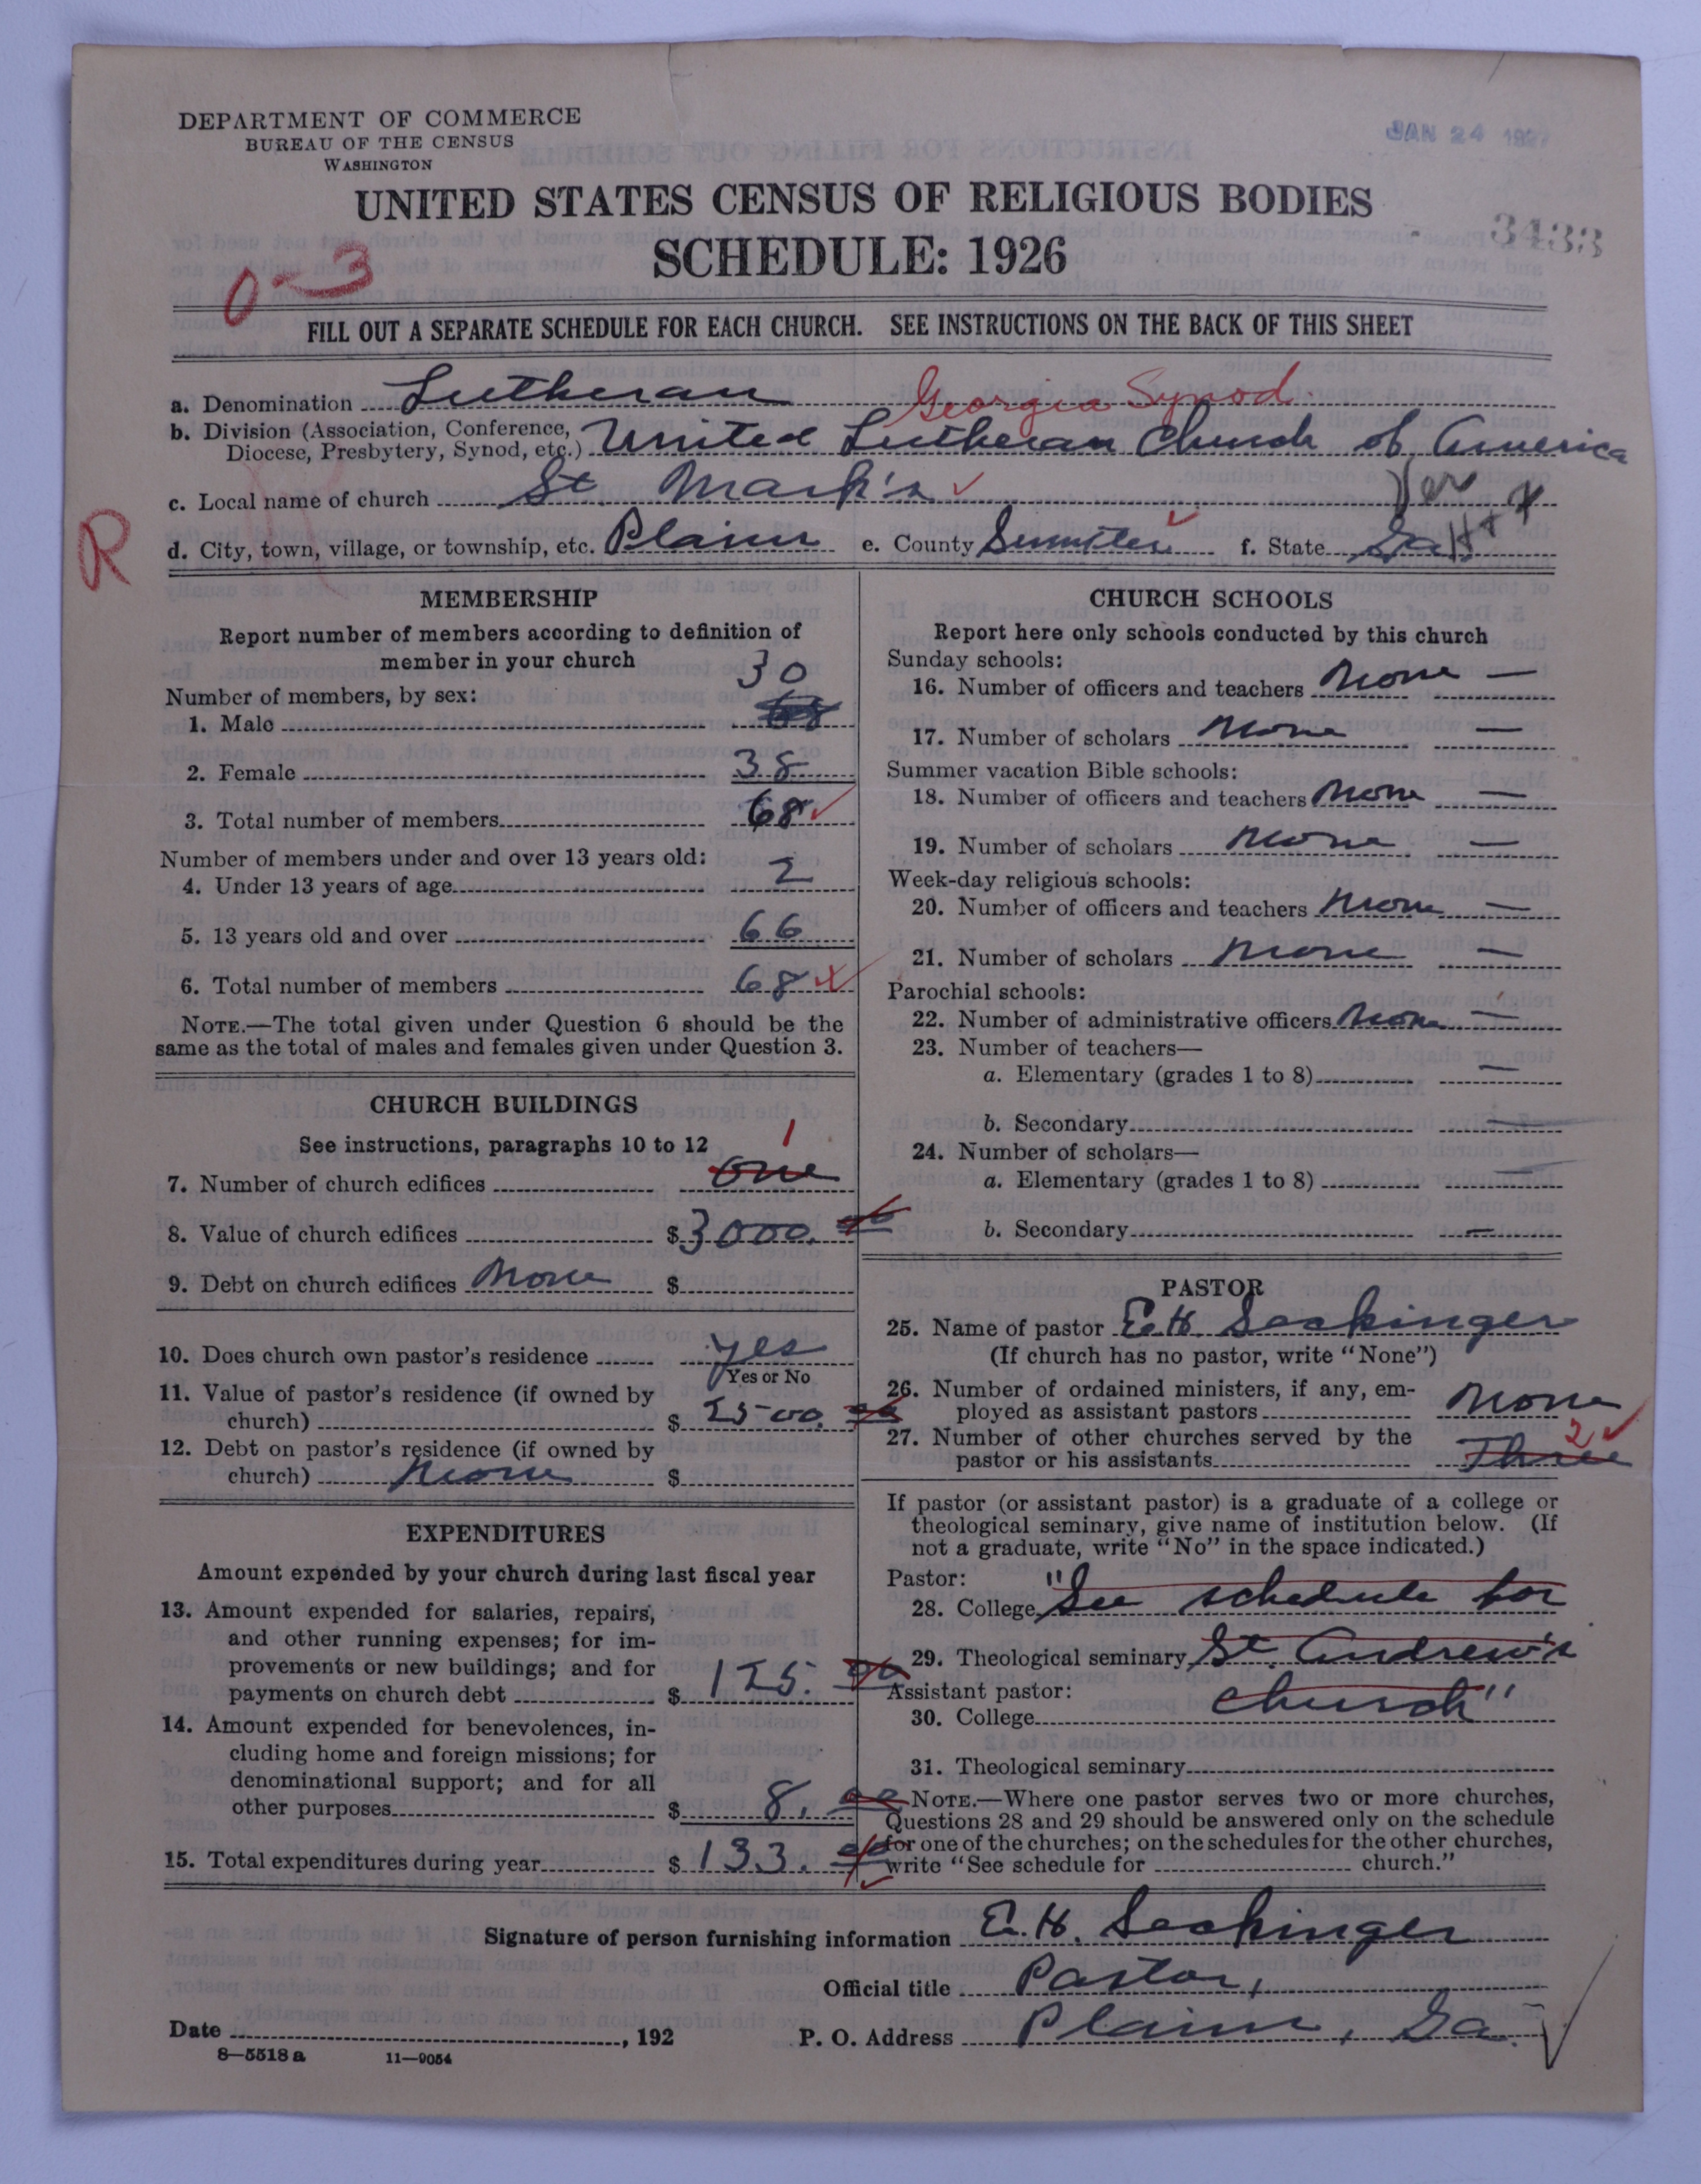 DEPARTMENT OF COMMERCE
BUREAU OF THE CENSUS
WASHINGTON
JAN 24 192
UNITED STATES CENSUS OF RELIGIOUS BODIES
SCHEDULE: 1926
3433
0-3
FILL OUT A SEPARATE SCHEDULE FOR EACH CHURCH. SEE INSTRUCTIONS ON THE BACK OF THIS SHEET
a. Denomination Lutheran Georgia Synod
b. Division (Association, Conference, Diocese, Presbytery, Synod, etc.) United Lutheran Church of America
c. Local name of church St. Mark's
R
d. City, town, village, or township, etc. Plains e. County Sumter f. State Ga
MEMBERSHIP
Report number of members according to definition of
member in your church
Number of members, by sex:
1. Male 30
2. Female 38
3. Total number of members 68
Number of members under and over 13 years old:
4. Under 13 years of age 2
5. 13 years old and over 66
6. Total number of members 68
NOTE.—The total given under Question 6 should be the
same as the total of males and females given under Question 3.
CHURCH BUILDINGS
See instructions, paragraphs 10 to 12
7. Number of church edifices one 1
8. Value of church edifices $3000.00
9. Debt on church edifices None $
10. Does church own pastor's residence yes
Yes or No
11. Value of pastor's residence (if owned by
church) $2500.00
12. Debt on pastor's residence (if owned by
church) None $
EXPENDITURES
Amount expended by your church during last fiscal year
13. Amount expended for salaries, repairs,
and other running expenses; for im-
provements or new buildings; and for
payments on church debt $125.00
14. Amount expended for benevolences, in-
cluding home and foreign missions; for
denominational support; and for all
other purposes $8.00
15. Total expenditures during year $133.00
CHURCH SCHOOLS
Report here only schools conducted by this church
Sunday schools:
16. Number of officers and teachers None —
17. Number of scholars None —
Summer vacation Bible schools:
18. Number of officers and teachers None —
19. Number of scholars None —
Week-day religious schools:
20. Number of officers and teachers None —
21. Number of scholars None —
Parochial schools:
22. Number of administrative officers None —
23. Number of teachers—
a. Elementary (grades 1 to 8) —
b. Secondary —
24. Number of scholars—
a. Elementary (grades 1 to 8) —
b. Secondary —
PASTOR
25. Name of pastor E.H. Seckinger
(If church has no pastor, write "None")
26. Number of ordained ministers, if any, em-
ployed as assistant pastors None
27. Number of other churches served by the
pastor or his assistants Three 2
If pastor (or assistant pastor) is a graduate of a college or
theological seminary, give name of institution below. (If
not a graduate, write "No" in the space indicated.)
Pastor:
28. College "See schedule for
29. Theological seminary St. Andrew's
Assistant pastor:
30. College church"
31. Theological seminary
NOTE.—Where one pastor serves two or more churches,
Questions 28 and 29 should be answered only on the schedule
for one of the churches; on the schedules for the other churches,
write "See schedule for church."
Signature of person furnishing information E.H. Seckinger
Official title Pastor,
Date , 192 P. O. Address Plains, Ga.
8—5518 a 11—9054